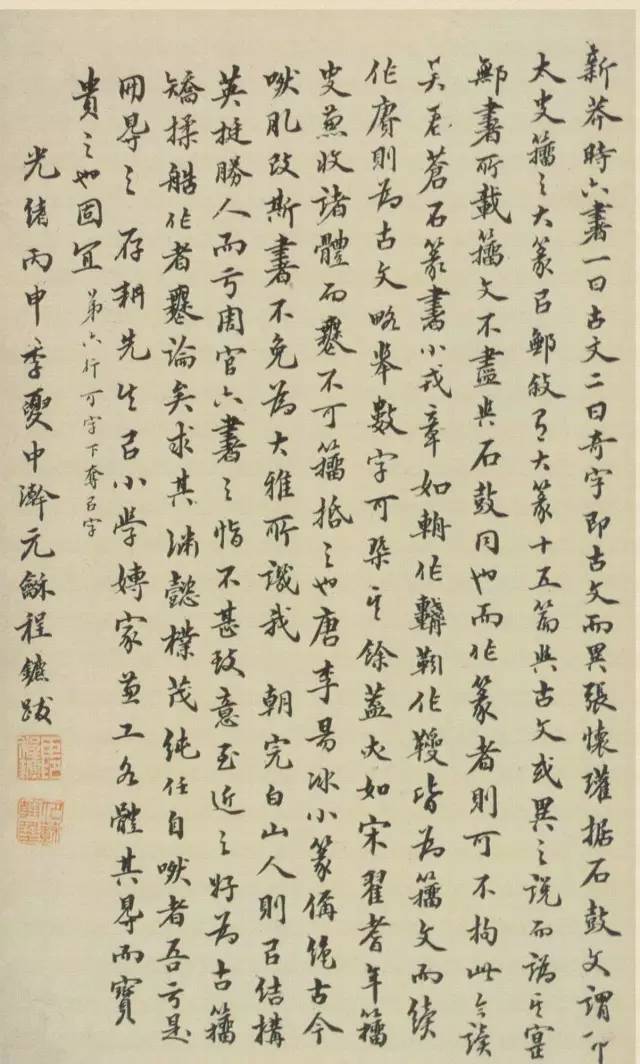 新莽時六書一曰古文二曰奇字即古文而異張懷瓘据石鼓文謂即
太史籀之大篆㠯鄦敘有大篆十五篇與古文或異之説而譌其實
鄦書所載籀文不盡與石鼓同也而作篆者則可不拘此今讀
吴君蒼石篆書小戎章如輈作 靷作 皆為籀文而續
作賡則為古文略舉數字可槩其餘蓋亦如宋翟耆年籀
史兼收諸體而 不可籀抵之也唐李昜冰小篆偁絶古今
肰肊改斯書不免為大雅所譏我 朝完白山人則㠯結構
英挺勝人而亏周官六書之恉不甚致意至近之好為古籀
矯揉 作者 論矣求其淵懿樸茂純任自肰者吾亏是
冊䙷之 存耕先生㠯小学嫥家兼工各體其䙷而寶
貴之也固宜 第六行可字下奪㠯字
光緒丙申季夏中澣元龢程鑣跋